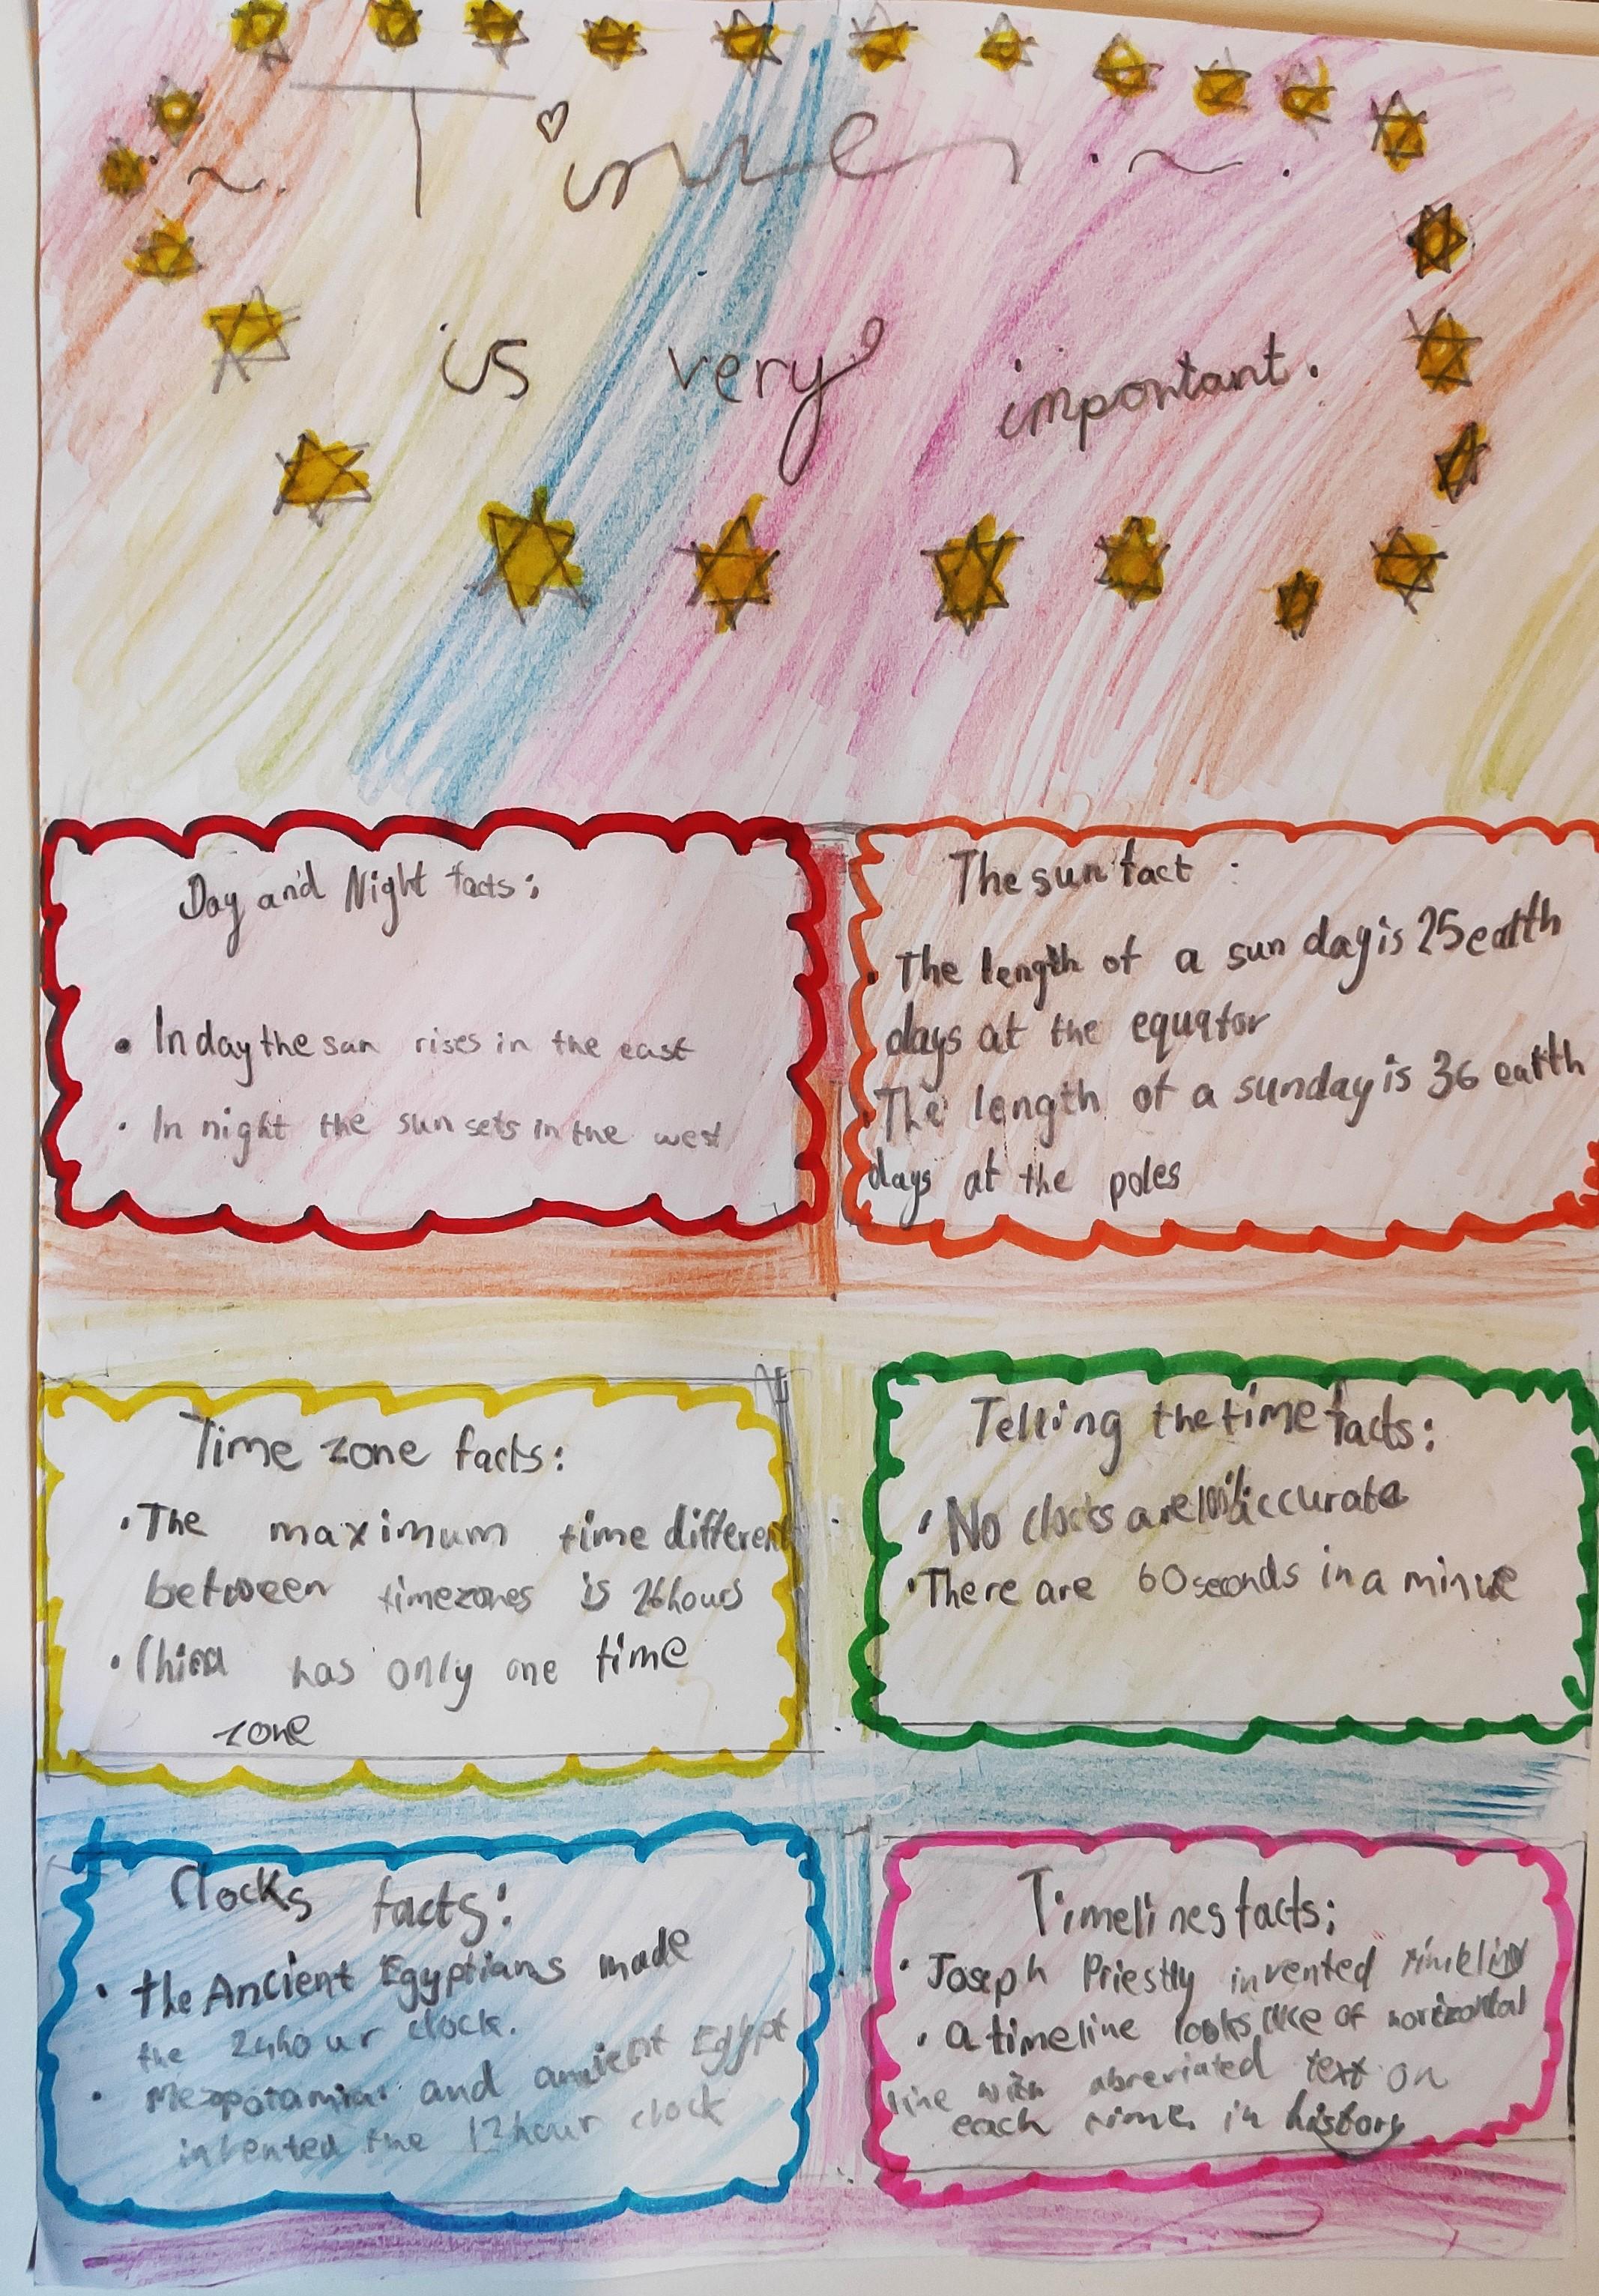 ~. Time. ~.
is very important.
Day and Night facts:
• In day the sun rises in the east
• In night the sun sets in the west
The sun fact :
• The length of a sun day is 25 earth
days at the equator
• The length of a sunday is 36 earth
days at the poles
Time zone facts:
• The maximum time different
between timezones is 26 hours
• China has only one time
zone
Telling the time facts:
• No clocks are 100% accurate
• There are 60 seconds in a minute
Clocks facts:
• the Ancient Egyptians made
the 24 hour clock.
• Mezopotamia and ancient Egypt
invented the 12 hour clock
Timelines facts:
• Joseph Priestly invented
• a timeline looks like of horizontal
line with abreviated text on
each time in history